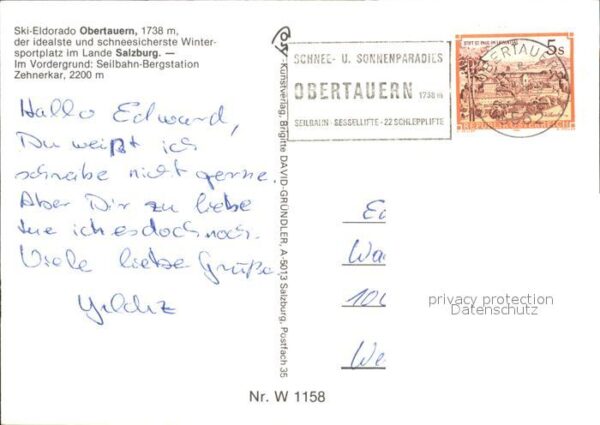 Ski-Eldorado Obertauern, 1738 m,
der idealste und schneesicherste Winter-
sportplatz im Lande Salzburg. —
Im Vordergrund: Seilbahn-Bergstation
Zehnerkar, 2200 m
Hallo Edward,
Du weißt ich
schreibe nicht gerne.
Aber Dir zu liebe
tue ich es doch noch.
Viele liebe Grüße
Yildiz
Kunstverlag, Brigitte DAVID-GRÜNDLER, A-5013 Salzburg, Postfach 35
SCHNEE- U. SONNENPARADIES
OBERTAUERN 1738 m
SEILBAHN - SESSELLIFTE - 22 SCHLEPPLIFTE
OBERTAUERN
5s
STIFT ST. PAUL IM LAVANTTAL
REPUBLIK ÖSTERREICH
Ed
Wa
100
We
privacy protection
Datenschutz
Nr. W 1158